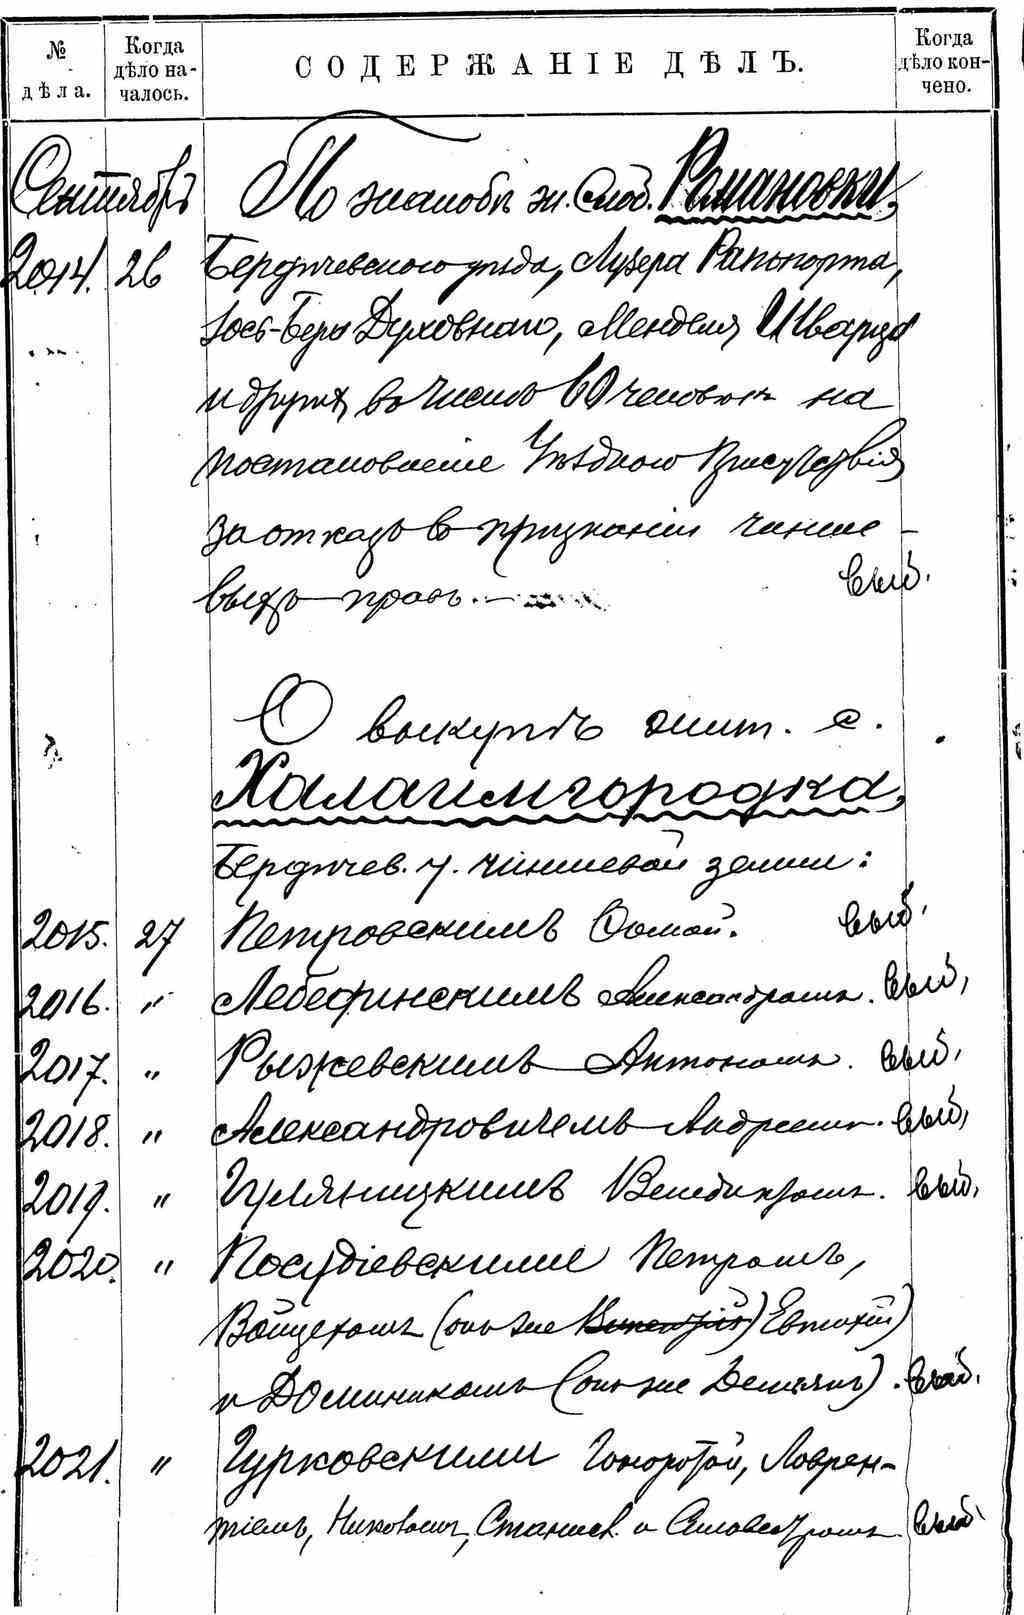 № дѣла.
Когда дѣло на-чалось.
СОДЕРЖАНІЕ ДѢЛЪ.
Когда дѣло кон-чено.
Сентябрь По жалобѣ ж. Слоб. Романовки,
2014. 26 Бердичевскаго уѣзда, Лузера Рапопорта,
Іось-Бера Духовнаго, Менделя Шварца
и другихъ, въ числѣ 60 человѣкъ на
постановленіе Уѣзднаго Присутствія
за отказъ въ признаніи чинше-
выхъ правъ. — выб.
О выкупѣ жит. с.
Халаимгородка,
Бердичев. у. чиншевой земли:
2015. 27 Петровскимъ Ѳомой. выб.
2016. " Лебединскимъ Александромъ. выб.
2017. " Рыжевскимъ Антономъ. выб.
2018. " Александровичемъ Андреемъ. выб.
2019. " Гуляницкимъ Венедиктомъ. выб.
2020. " Посудіевскими Петромъ,
Войцехомъ (онъ же Евтихій)
и Доминикомъ (онъ же Демьянъ). выб.
2021. " Гурковскими Гоноратой, Лаврен-
тіемъ, Станисл. и Сильвестромъ выб.